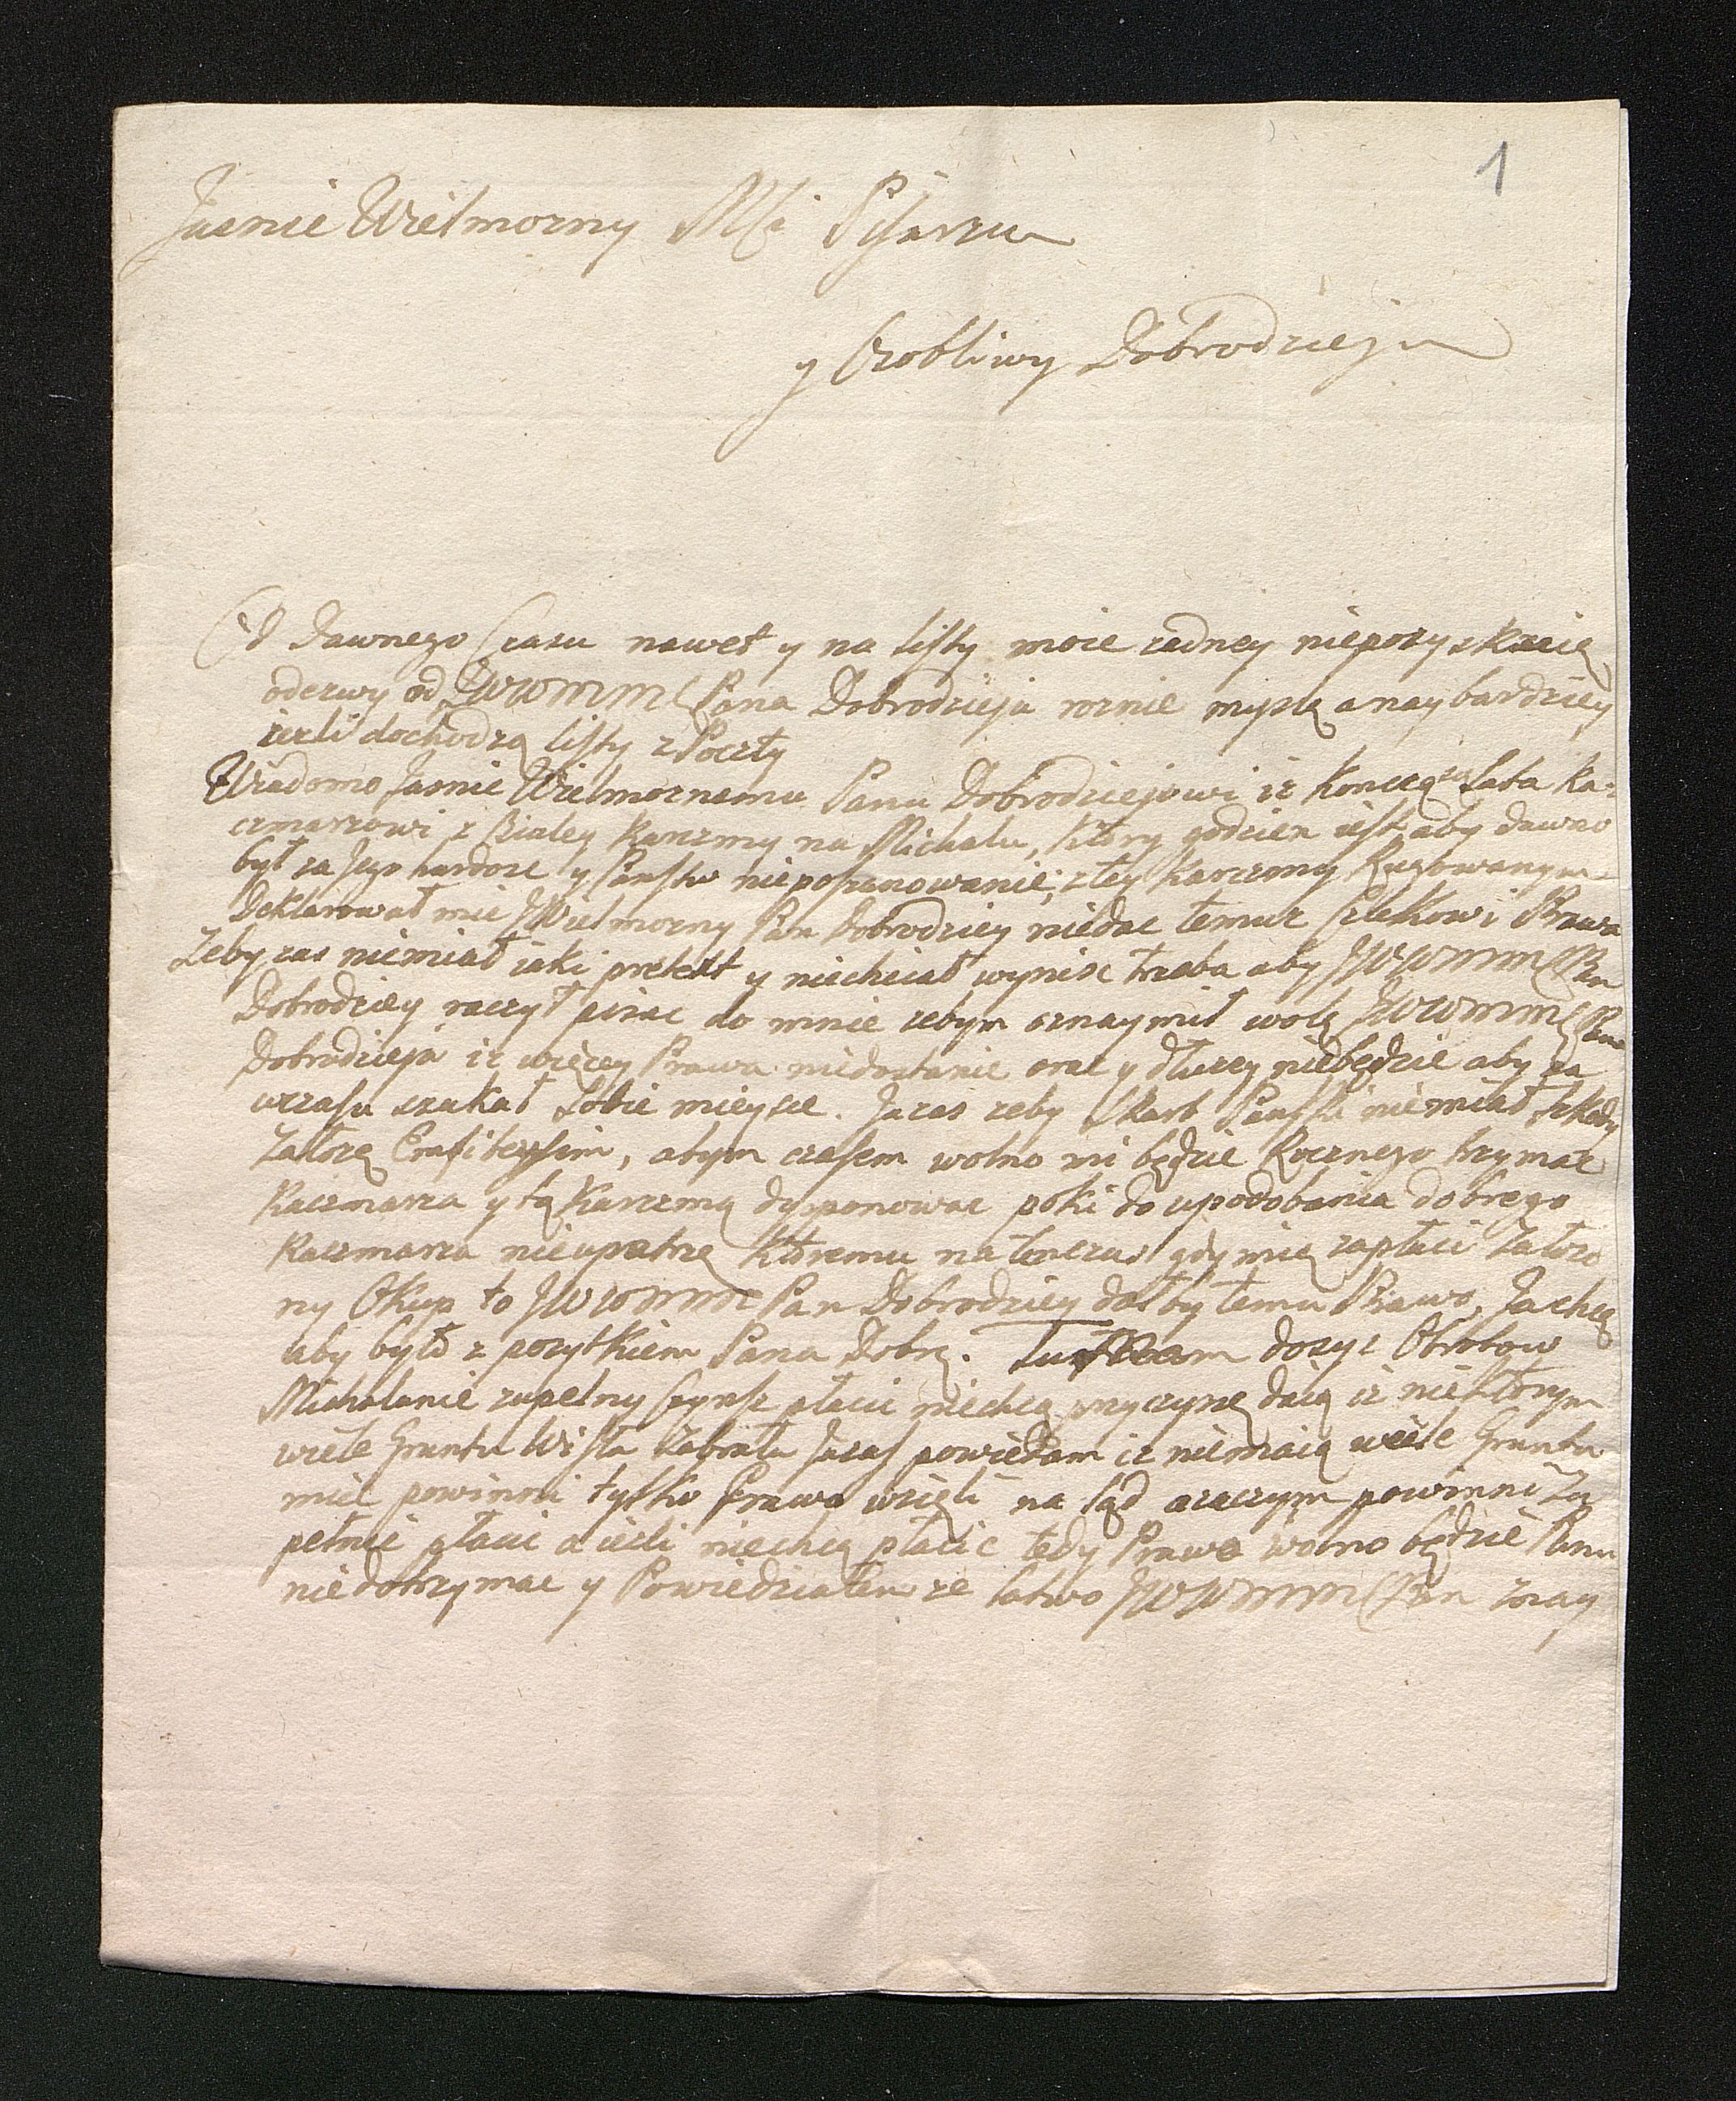 1
Jasnie Wielmozny Mći Pisarzu
y Osobliwy Dobrodzieju
Od Dawnego Czasu nawet y na listy moie zadney niepozyskaię
odezwy od JWWMM Pana Dobrodzieja roznie myslę a naybardziey
iezli dochodzą listy z Poczty
Wiadomo Jasnie Wielmoznemu Panu Dobrodziejowi iz koncżą się Lata Ka-
czmarzowi z Bialey Karczmy na Michału, ktory godzien iest aby dawno
był za Jego hardosc y Panstw nieposzanowanie, z tey karczmy Rugowanym
Deklarował mie JWielmozny Pan Dobrodziey niedac temuz Człekowi Prawa
Zeby zas niemiał iaki pretext y niechciał wynisc trzeba aby JWWMM Pan
Dobrodziey raczył pisac do mnie zebym oznaymił wolę JWWMM Pana
Dobrodzieja iz więcey Prawa niedostanie oraz y dłuzey niebędzie aby za
wczasu szukał sobie mieysce. Ja zas zeby Skarb Panski niemiał szkody
Założę Emfiteusim, abym czasem wolno mi będzie Rocznego trzymac
Kaczmarza y tą Karczmą dysponowac poki do upodobania dobrego
Kaczmarza nieupatrzę ktoremu natenczas gdy mię zapłaci Załozo
ny Okup to JWWMM Pan Dobrodziey dałby temu Prawo, Ja chcę
aby było z pozytkiem Pana Dobrę. Tu mam dosyc Obrobow
Michalanie zupełny Czynsz płacic niechcą przyczynę daią iz niektorym
wiele Gruntu Wisła zabrała Ja zas powiedam iz niemaią wiele Gruntu
miec powinni tylko Prawa wzięli na ląd a zaczym powinni Zu
pełnie płacic a iesli niechcą płacic tedy Prawa wolno będzie Panu
niedotrzymac y Powiedziałem ze łatwo JWWMM Pan znay